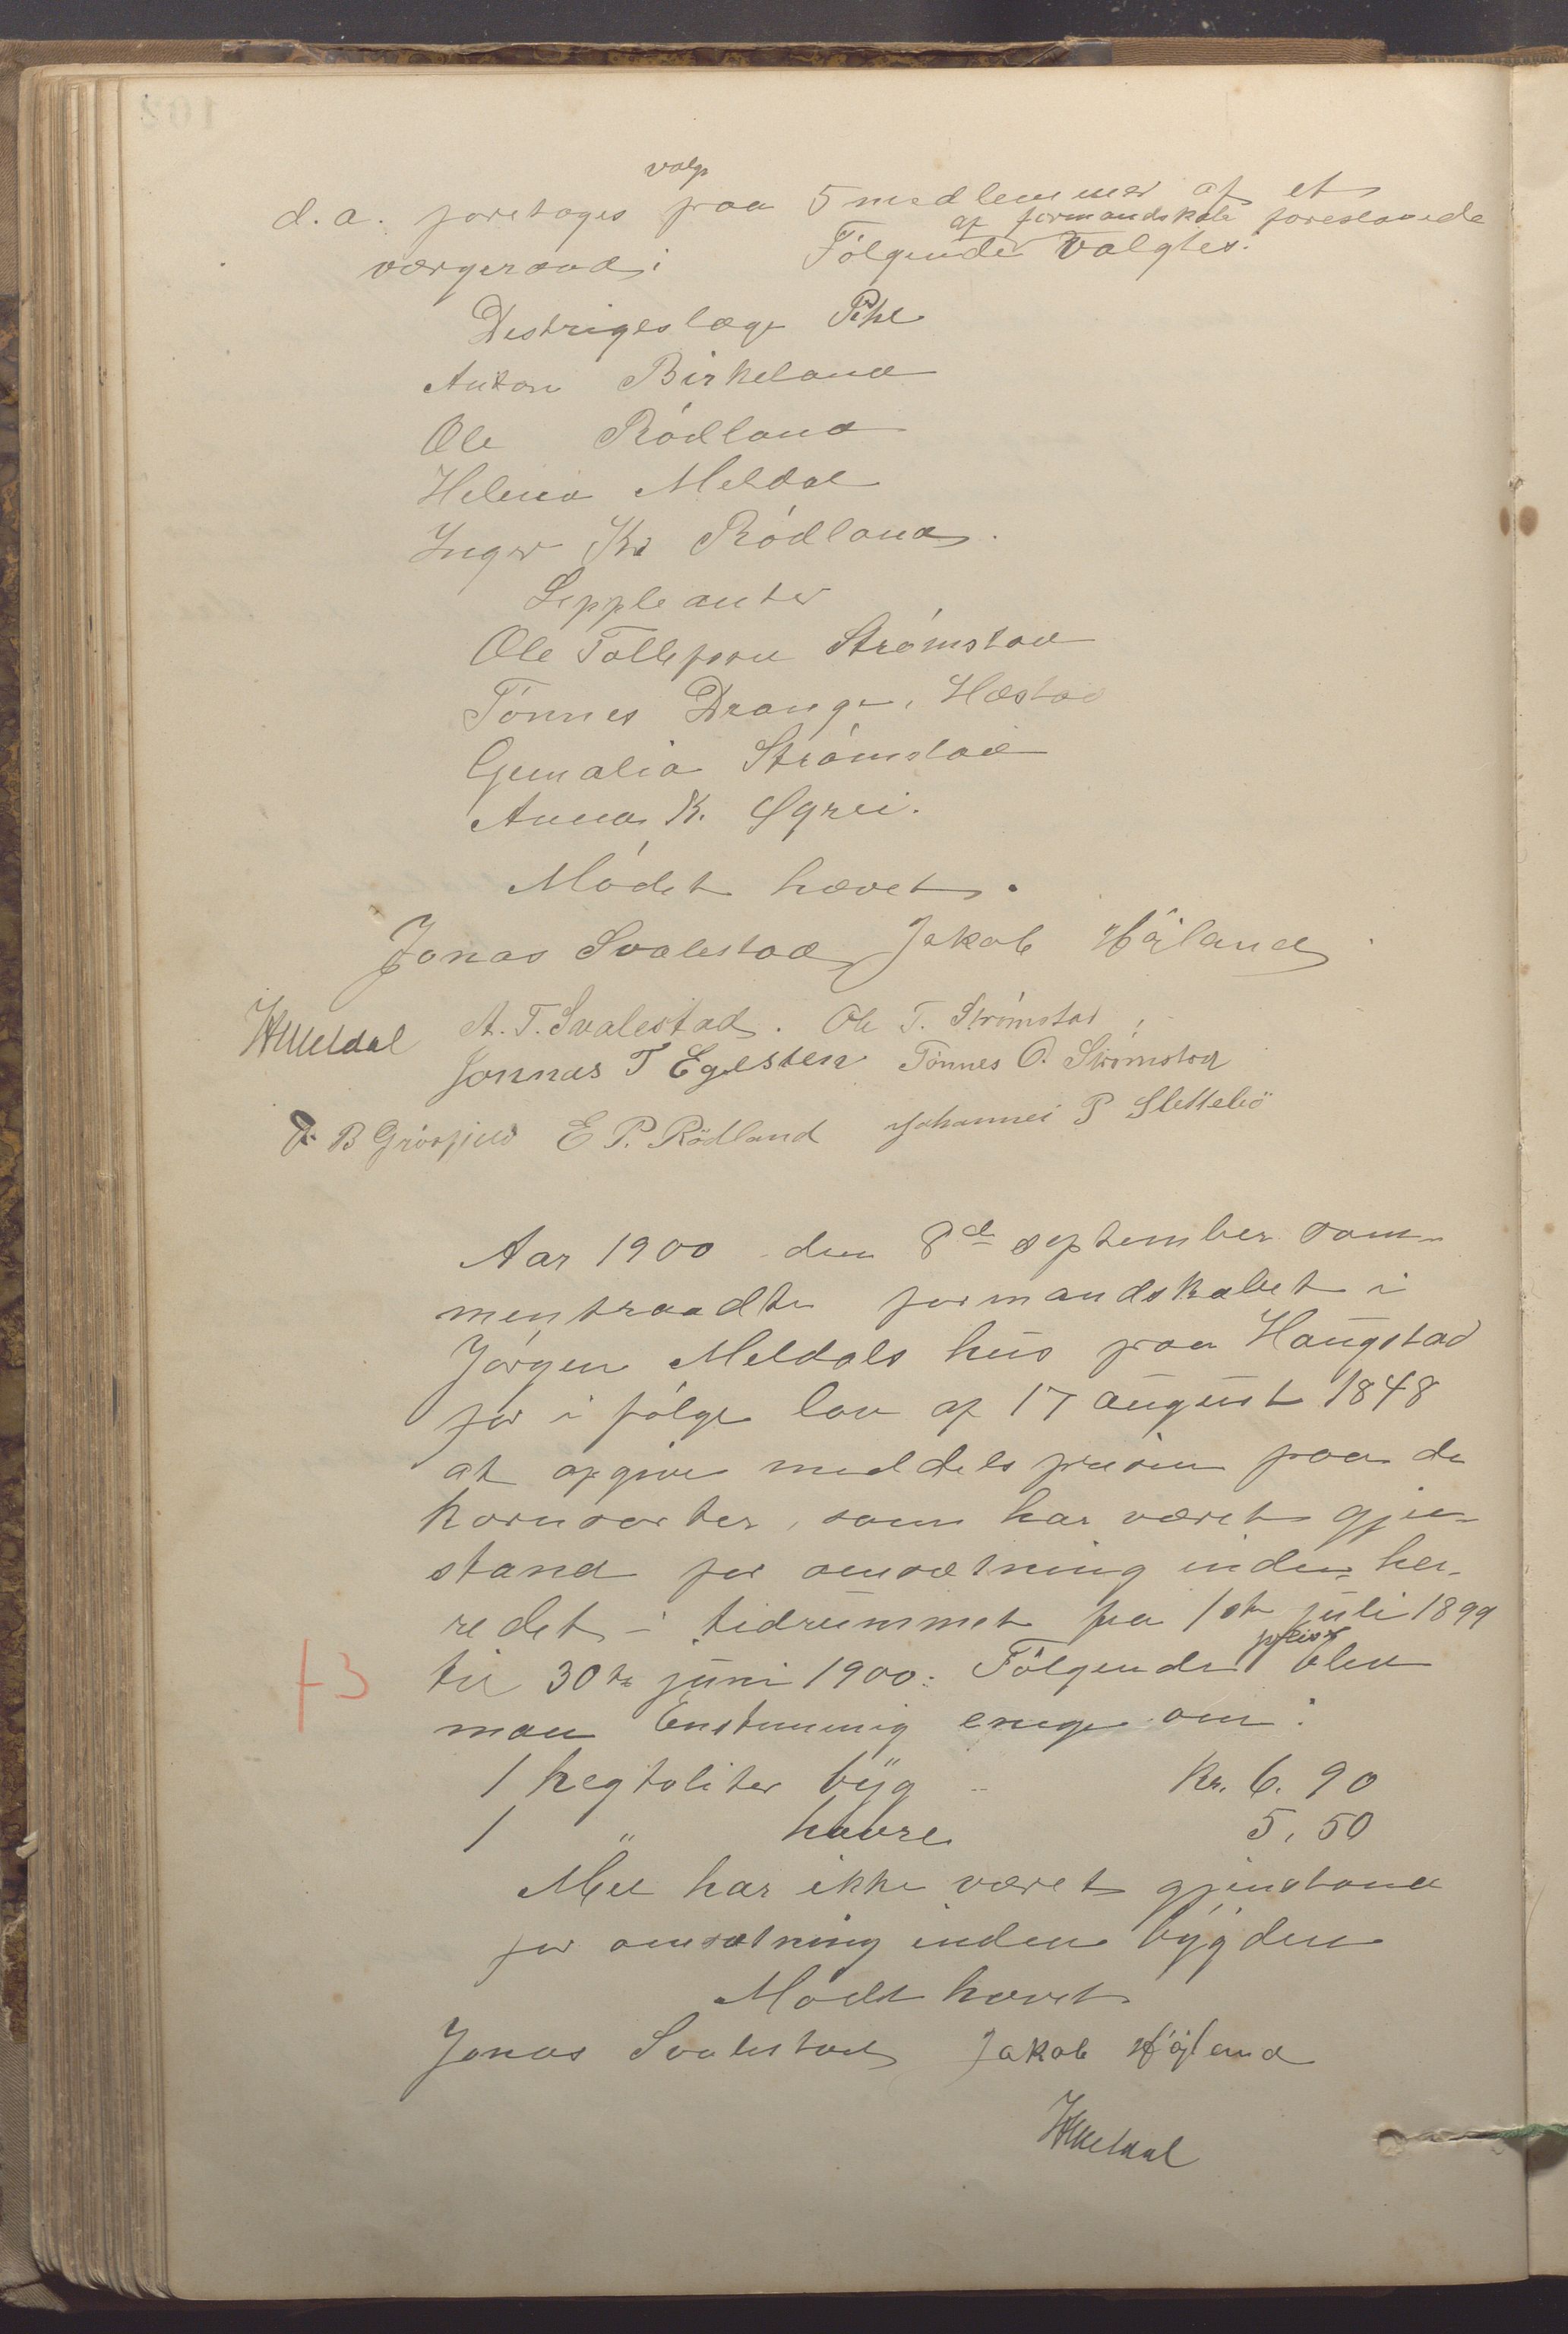 d. a. foretoges valg paa 5 medlemmer af et
værgeraad: Følgende af formandskab foreslaaede valgtes:
Destrigtslæge Pihl
Anton Birkeland
Ole Rødland
Helena Meldal
Inger Kr Rødland.
Sepple anter
Ole Tollefsen Strømstad
Tønnes Drange, Hæstad
Gemalia Strømstad
Anna K. Øgrei.
Mødet hævet.
Jonas Svalestad Jakob Håland
JMeldal A. T. Svalestad. Ole T. Strømstad
Jonnas T Egelsten Tønnes O. Strømstad
B Grøsfjeld E P. Rödland Johannes P Slettebö
Aar 1900 den 8de september sam-
mentraadte formandskabet i
Jørgen Meldals hus paa Haugstad
for i følge lov af 17 august 1848
at opgive middels prisen paa de
kornsorter, som har været gjen-
stand for omsætning inden her-
redet i tidrummet fra 1ste juli 1899
til 30te juni 1900: Følgende priser blev
man Enstemmig enige om:
1 hegtoliter byg - Kr. 6. 90
1 " havre 5, 50
Mel har ikke været gjenstand
for omsætning inden bygden
Mødet hævet
Jonas Svalestad Jakob Håland
JMeldal